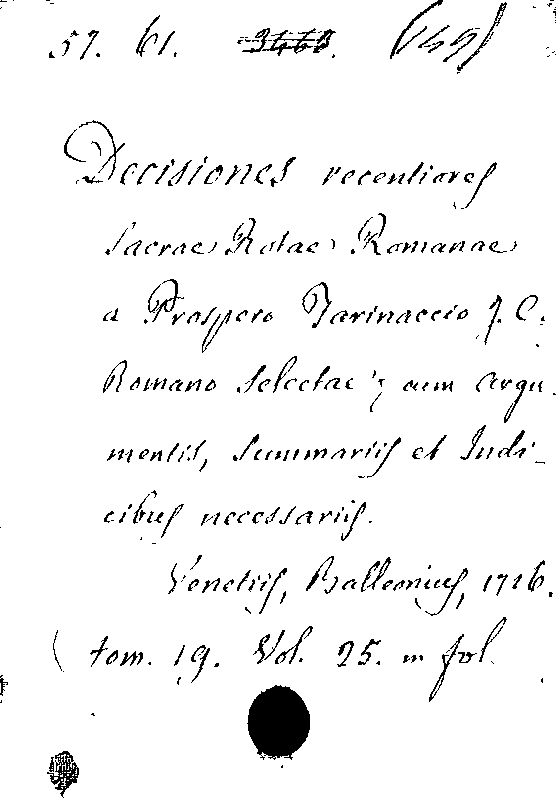 57. 61. 3468. (159)
Decisiones recentiores
sacrae Rotae Romanae
a Prospero Farinaccio J. C.
Romano selectae; cum argu-
mentis, summariis et Indi-
cibus necessariis.
Venetiis, Balleonius, 1716.
(tom. 19. Vol. 25. in fol.